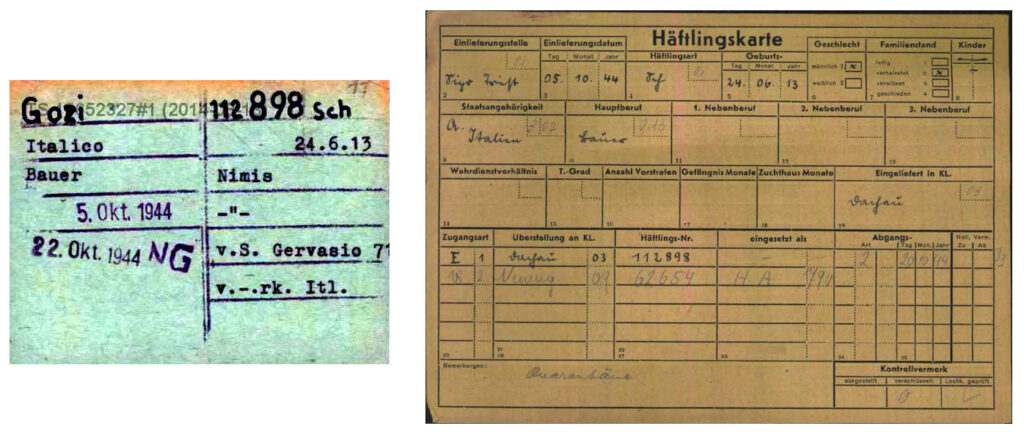 17
Gozi
112 898 Sch
652327#1 (2014
Italico
24.6.13
Bauer
Nimis
5. Okt. 1944
-"-
22. Okt. 1944 NG
v.S. Gervasio 7
v.-.rk. Itl.
Häftlingskarte
Einlieferungsstelle
Einlieferungsdatum
Tag Monat Jahr
Häftlingsart
Geburts-
Tag Monat Jahr
Geschlecht
Familienstand
Kinder
Sipo Triest
05. 10. 44
Sch
24. 06. 13
männlich 1 x
weiblich 2
ledig 1
verheiratet 2 x
verwitwet 3
geschieden 4
2 3 4 5 6 7 8
Staatsangehörigkeit
Hauptberuf
1. Nebenberuf
2. Nebenberuf
3. Nebenberuf
Italien
Bauer
9 10 11 12 13
Wehrdienstverhältnis
T.-Grad
Anzahl Vorstrafen
Gefängnis Monate
Zuchthaus Monate
Eingeliefert in KL.
03
Dachau
14 15 16 17 18 19
Zugangsart
Überstellung an KL.
Häftlings-Nr.
eingesetzt als
Abgangs-
Art Tag Mon. Jahr
Holl. Verm.
Zu Ab
E 1 Dachau 03 112898 — 2 20 10 44
2 Neueng 09 62654 H A
20 21 22 23 24 25
Bemerkungen:
Quarantäne
Kontrollvermerk
ausgestellt verschlüsselt Lochk. geprüft